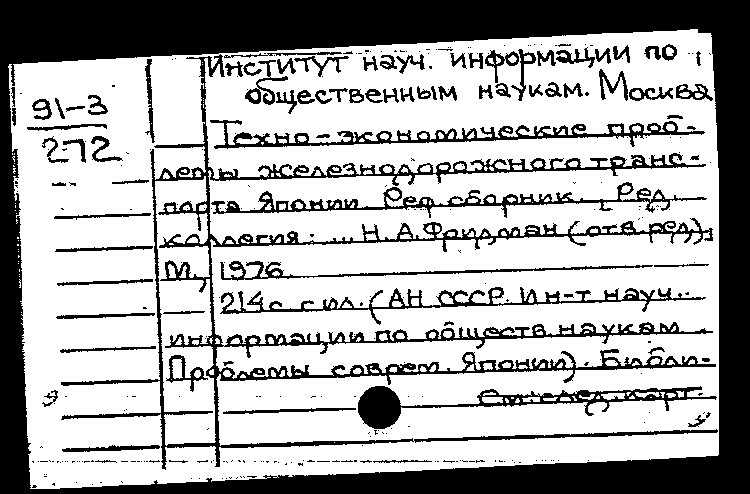 Институт науч. информации по
общественным наукам. Москва
91-3
272
Техно-экономические проб-
лемы железнодорожного транс-
порта Японии. Реф. сборник. [Ред.
коллегия: ... Н.А. Фридман (отв. ред.)]
М., 1976.
214 с. с ил. (АН СССР. Ин-т науч.
информации по обществ. наукам.
Проблемы соврем. Японии). Библи-
См. след. карт.